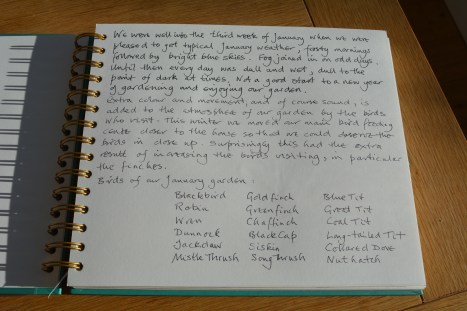 We were well into the third week of January when we were
pleased to get typical January weather, frosty mornings
followed by bright blue skies. Fog joined in on odd days.
Until then every day was dull and wet, dull to the
point of dark at times. Not a good start to a new year
of gardening and enjoying our garden.
Extra colour and movement, and of course sound, is
added to the atmosphere of our garden by the birds
who visit. This winter we moved our main bird feeding
centre closer to the house so that we could observe the
birds in close up. Surprisingly this had the extra
result of increasing the birds visiting, in particular
the finches.
Birds of our January garden:
Blackbird Goldfinch Blue Tit
Robin Greenfinch Great Tit
Wren Chaffinch Coal Tit
Dunnock BlackCap Long-tailed Tit
Jackdaw Siskin Collared Dove
Mistle Thrush Song Thrush Nuthatch